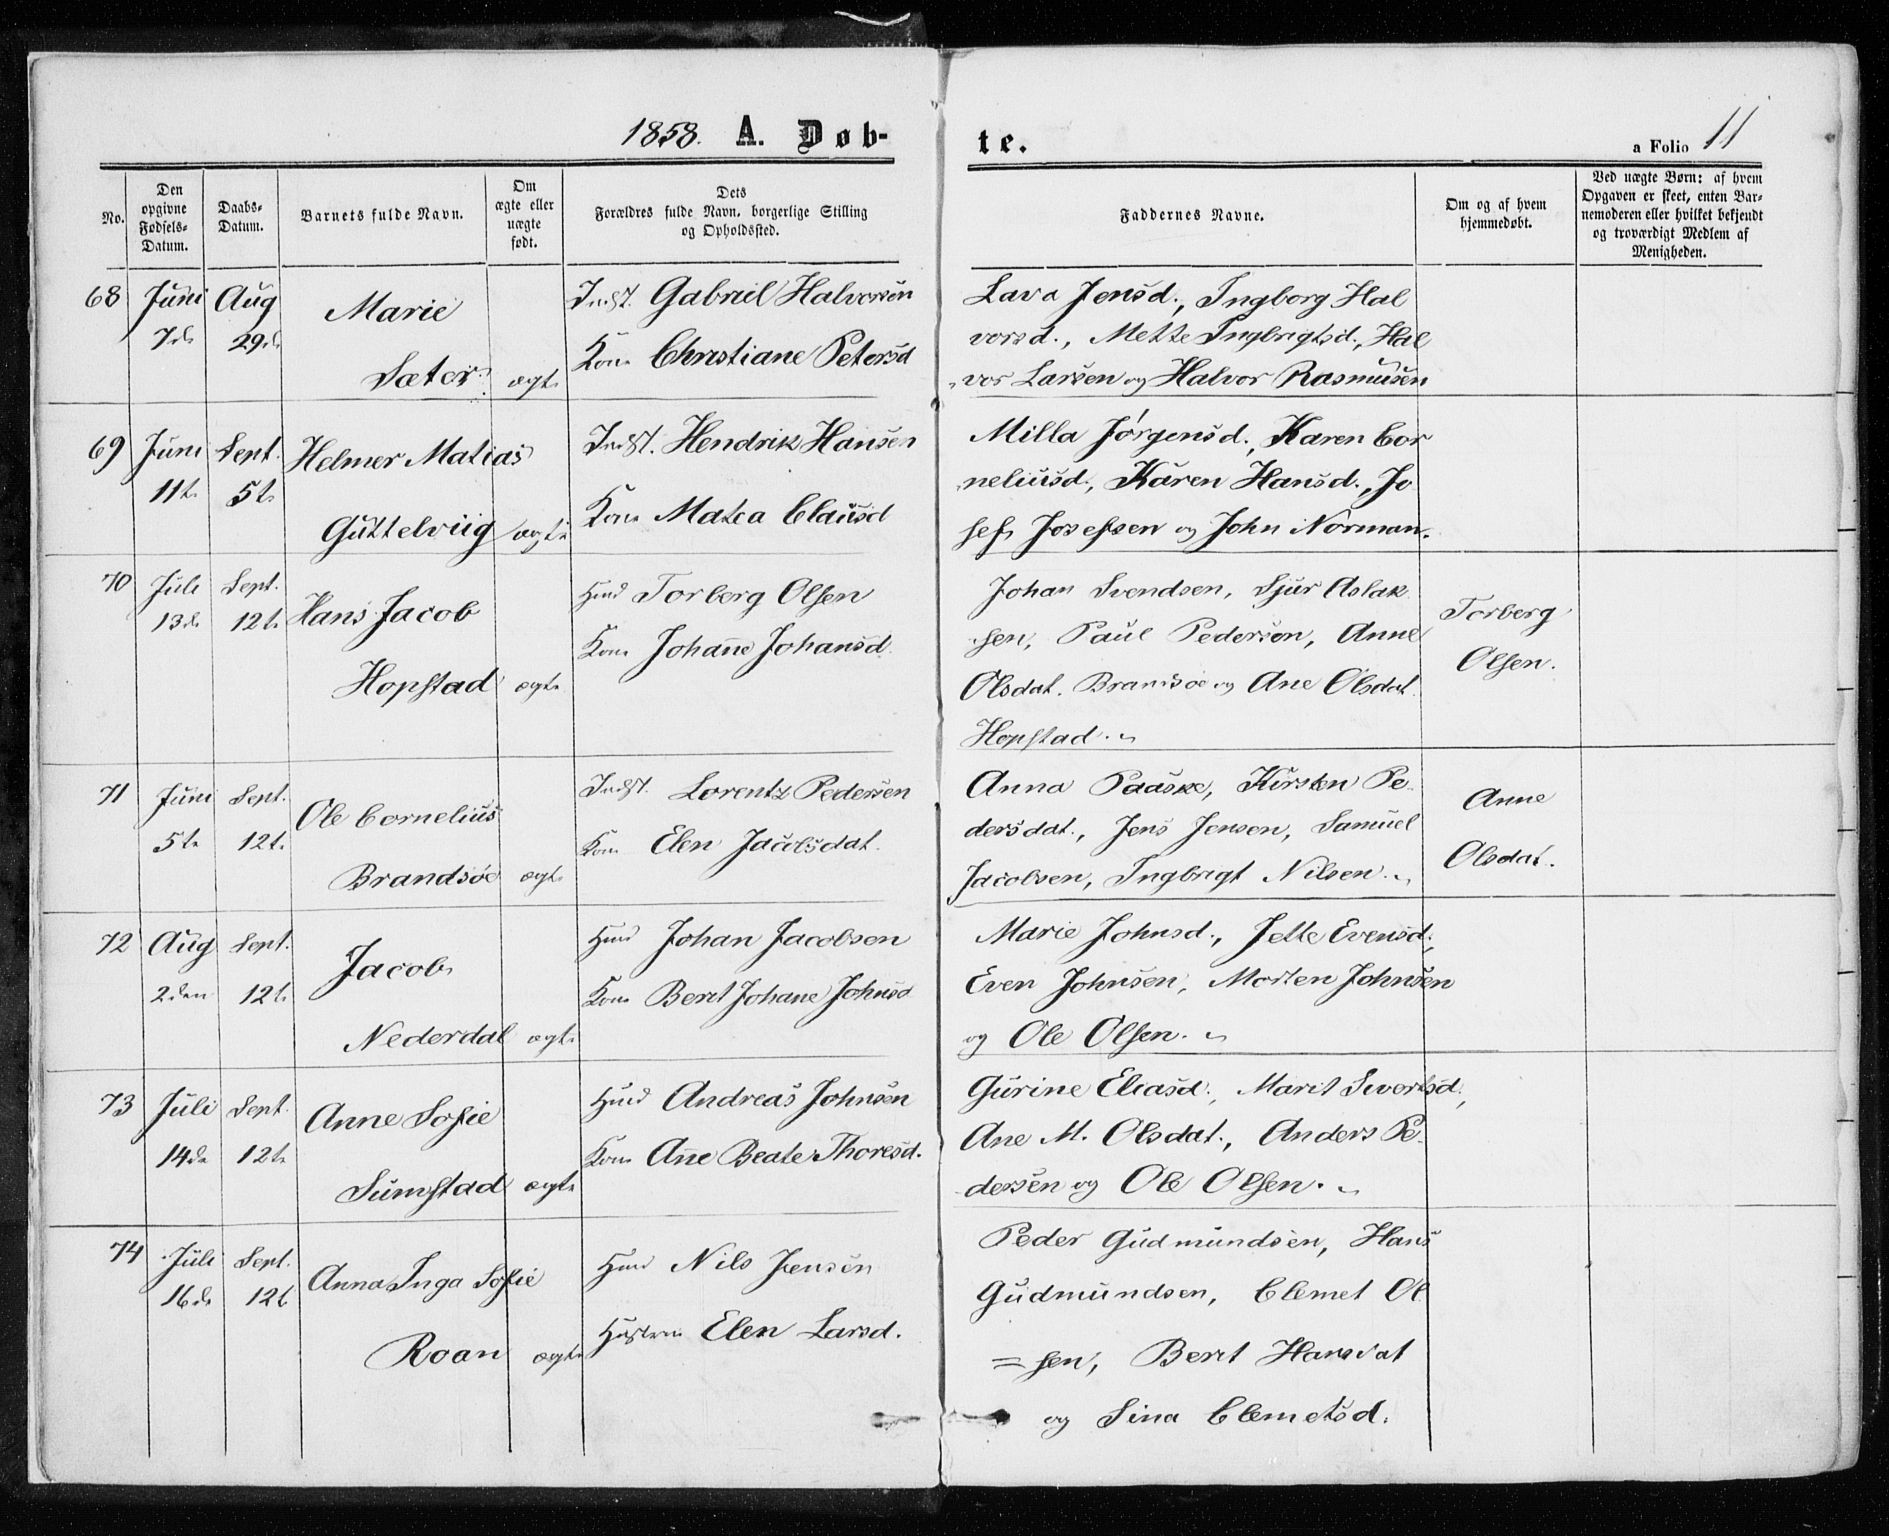 1858. A. Døb-
te.
a Folio 11
No.
Den
opgivne
Fødsels-
Datum.
Daabs-
Datum.
Barnets fulde Navn.
Om
ægte eller
uægte
født.
Dets
Forældres fulde Navn, borgerlige Stilling
og Opholdssted.
Faddernes Navne.
Om og af hvem
hjemmedøbt.
Ved uægte Børn: af hvem
Opgaven er skeet, enten Bar-
nemoderen eller hvilket bekjendt
og troværdigt Medlem af
Menigheden.
68 Juni 7de Aug 29de
Marie
Sæter. ægte
Indst. Gabriel Halvorsen
Kone Christiane Petersd
Lava Jensd., Ingborg Hal
vorsd., Mette Ingbrigtsd., Hal
vor Larsen og Halvor Rasmusen
69 Juni 11te Sept. 5te
Helmer Matias
Guttelviig ægte
Indst. Hendrik Hansen
Kone Matea Clausd
Milla Jørgensd., Karen Cor
neliusd., Karen Hansd., Jo
sef Josefsen og John Norman.
70 Juli 13de Sept. 12te
Hans Jacob
Hopstad ægte
Huusmd Torberg Olsen
Kone Johañe Johansd.
Johan Svendsen, Sjur Aslak
sen, Paul Pedersen, Anne
Olsdat. Brandsøe og Ane Olsdat.
Hopstad.
Torberg
Olsen.
71 Juni 5te Sept. 12te
Ole Cornelius
Brandsøe ægte
Indst. Lorentz Pedersen
Kone Elen Jacobsdat.
Anna Paaske, Kirsten Pe
dersdat., Jens Jensen, Samuel
Jacobsen, Ingbrigt Nilsen.
Anne
Olsdat.
72 Aug 2den Sept. 12te
Jacob
Nederdal ægte
Johan Jacobsen
Kone Beret Johane Johnsd
Marie Johnsd., Jette Evensd.,
Even Johnsen, Morten Johnsen
og Ole Olsen.
73 Juli 14de Sept. 12te
Anne Sofie
Sumstad ægte
Andreas Johnsen
Kone Añe Beate Thoresd.
Gurine Eliasd., Marit Sivertsd.,
Ane M. Olsdat., Anders Pe-
dersen og Ole Olsen.
74 Juli 16de Sept. 12t
Anna Inga Sofie
Roan ægte
Nils Jensen
Hustru Elen Larsd.
Peder Gudmundsen, Hans
Gudmundsen, Clemet Ol
=sen, Beret Hansdat
og Sina Clemetsd.